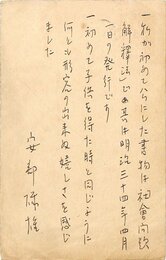 一、私が初めて公にした書物は社會問題
解釋法でゐ其は明治三十四年四月
一日の発行です
一、初めて子供を得た時と同じように
何とも形容の出来ぬ嬉しさを感じ
ました
安部磯雄